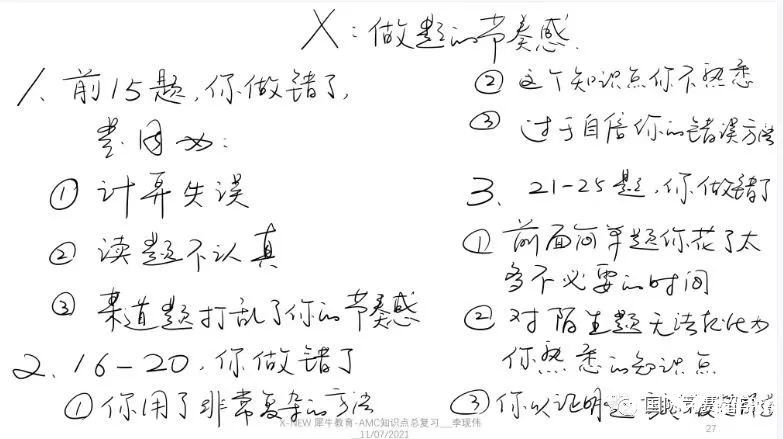 X：做题的节奏感
1、前15题，你做错了，
是因为：
① 计算失误
② 读题不认真
③ 某道题打乱了你的节奏感
2、16-20，你做错了
① 你用了非常复杂的方法
② 这个知识点你不熟悉
③ 过于自信你的错误方法
3、21-25题，你做错了
① 前面简单题你花了太
多不必要的时间
② 对陌生题无法转化为
你熟悉的知识点
③ 你以证明题
X-NEW 犀牛教育-AMC知识点总复习__李现伟
__11/07/2021
27